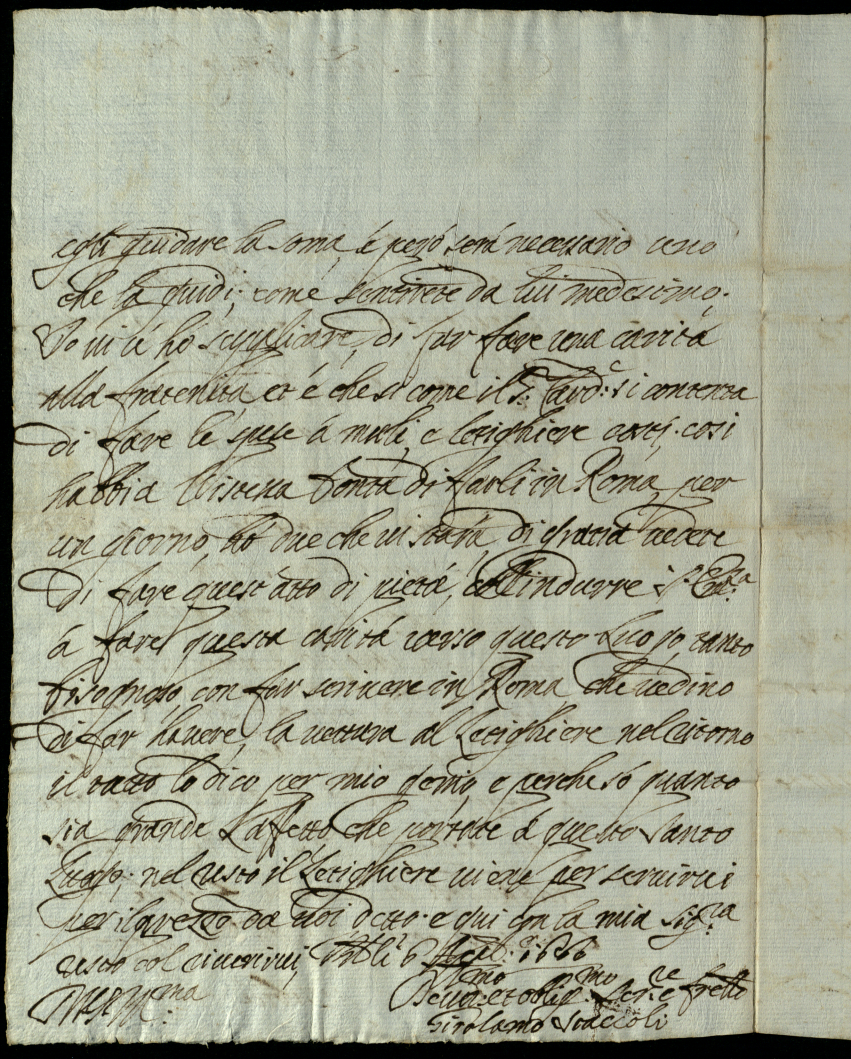 egli guidare la soma, è però sarà necessario uno
che la guidi; come sentirete da lui medesimo;
Io vi hò supplicare, di far fare una carità
alla fraternita et è che si come il S.r Card: si contenta
di fare le spese à muli, e letighiere costì. così
habbia l'istessa bontà di farli in Roma, per
un giorno, hò due che vi starà, di gratia vedete
di fare quest'atto di pietà, indurre S. Em.za
à fare questa carità verso questo Luogo, tanto
bisognoso, con far scrivere in Roma che vedino
di far havere, la vettura al Letighiere nel ritorno
il tutto lo dico per mio, e perche sò quanto
sia grande l'affetto che portate à questo santo
Luogo; nel resto il Letighiere viene per servirvi
per il prezzo da voi detto. e qui con la mia Sig.ra
resto col riverirvi, li 6 1626
et oblig.mo Ser.re e fratello
Girolamo Staccoli